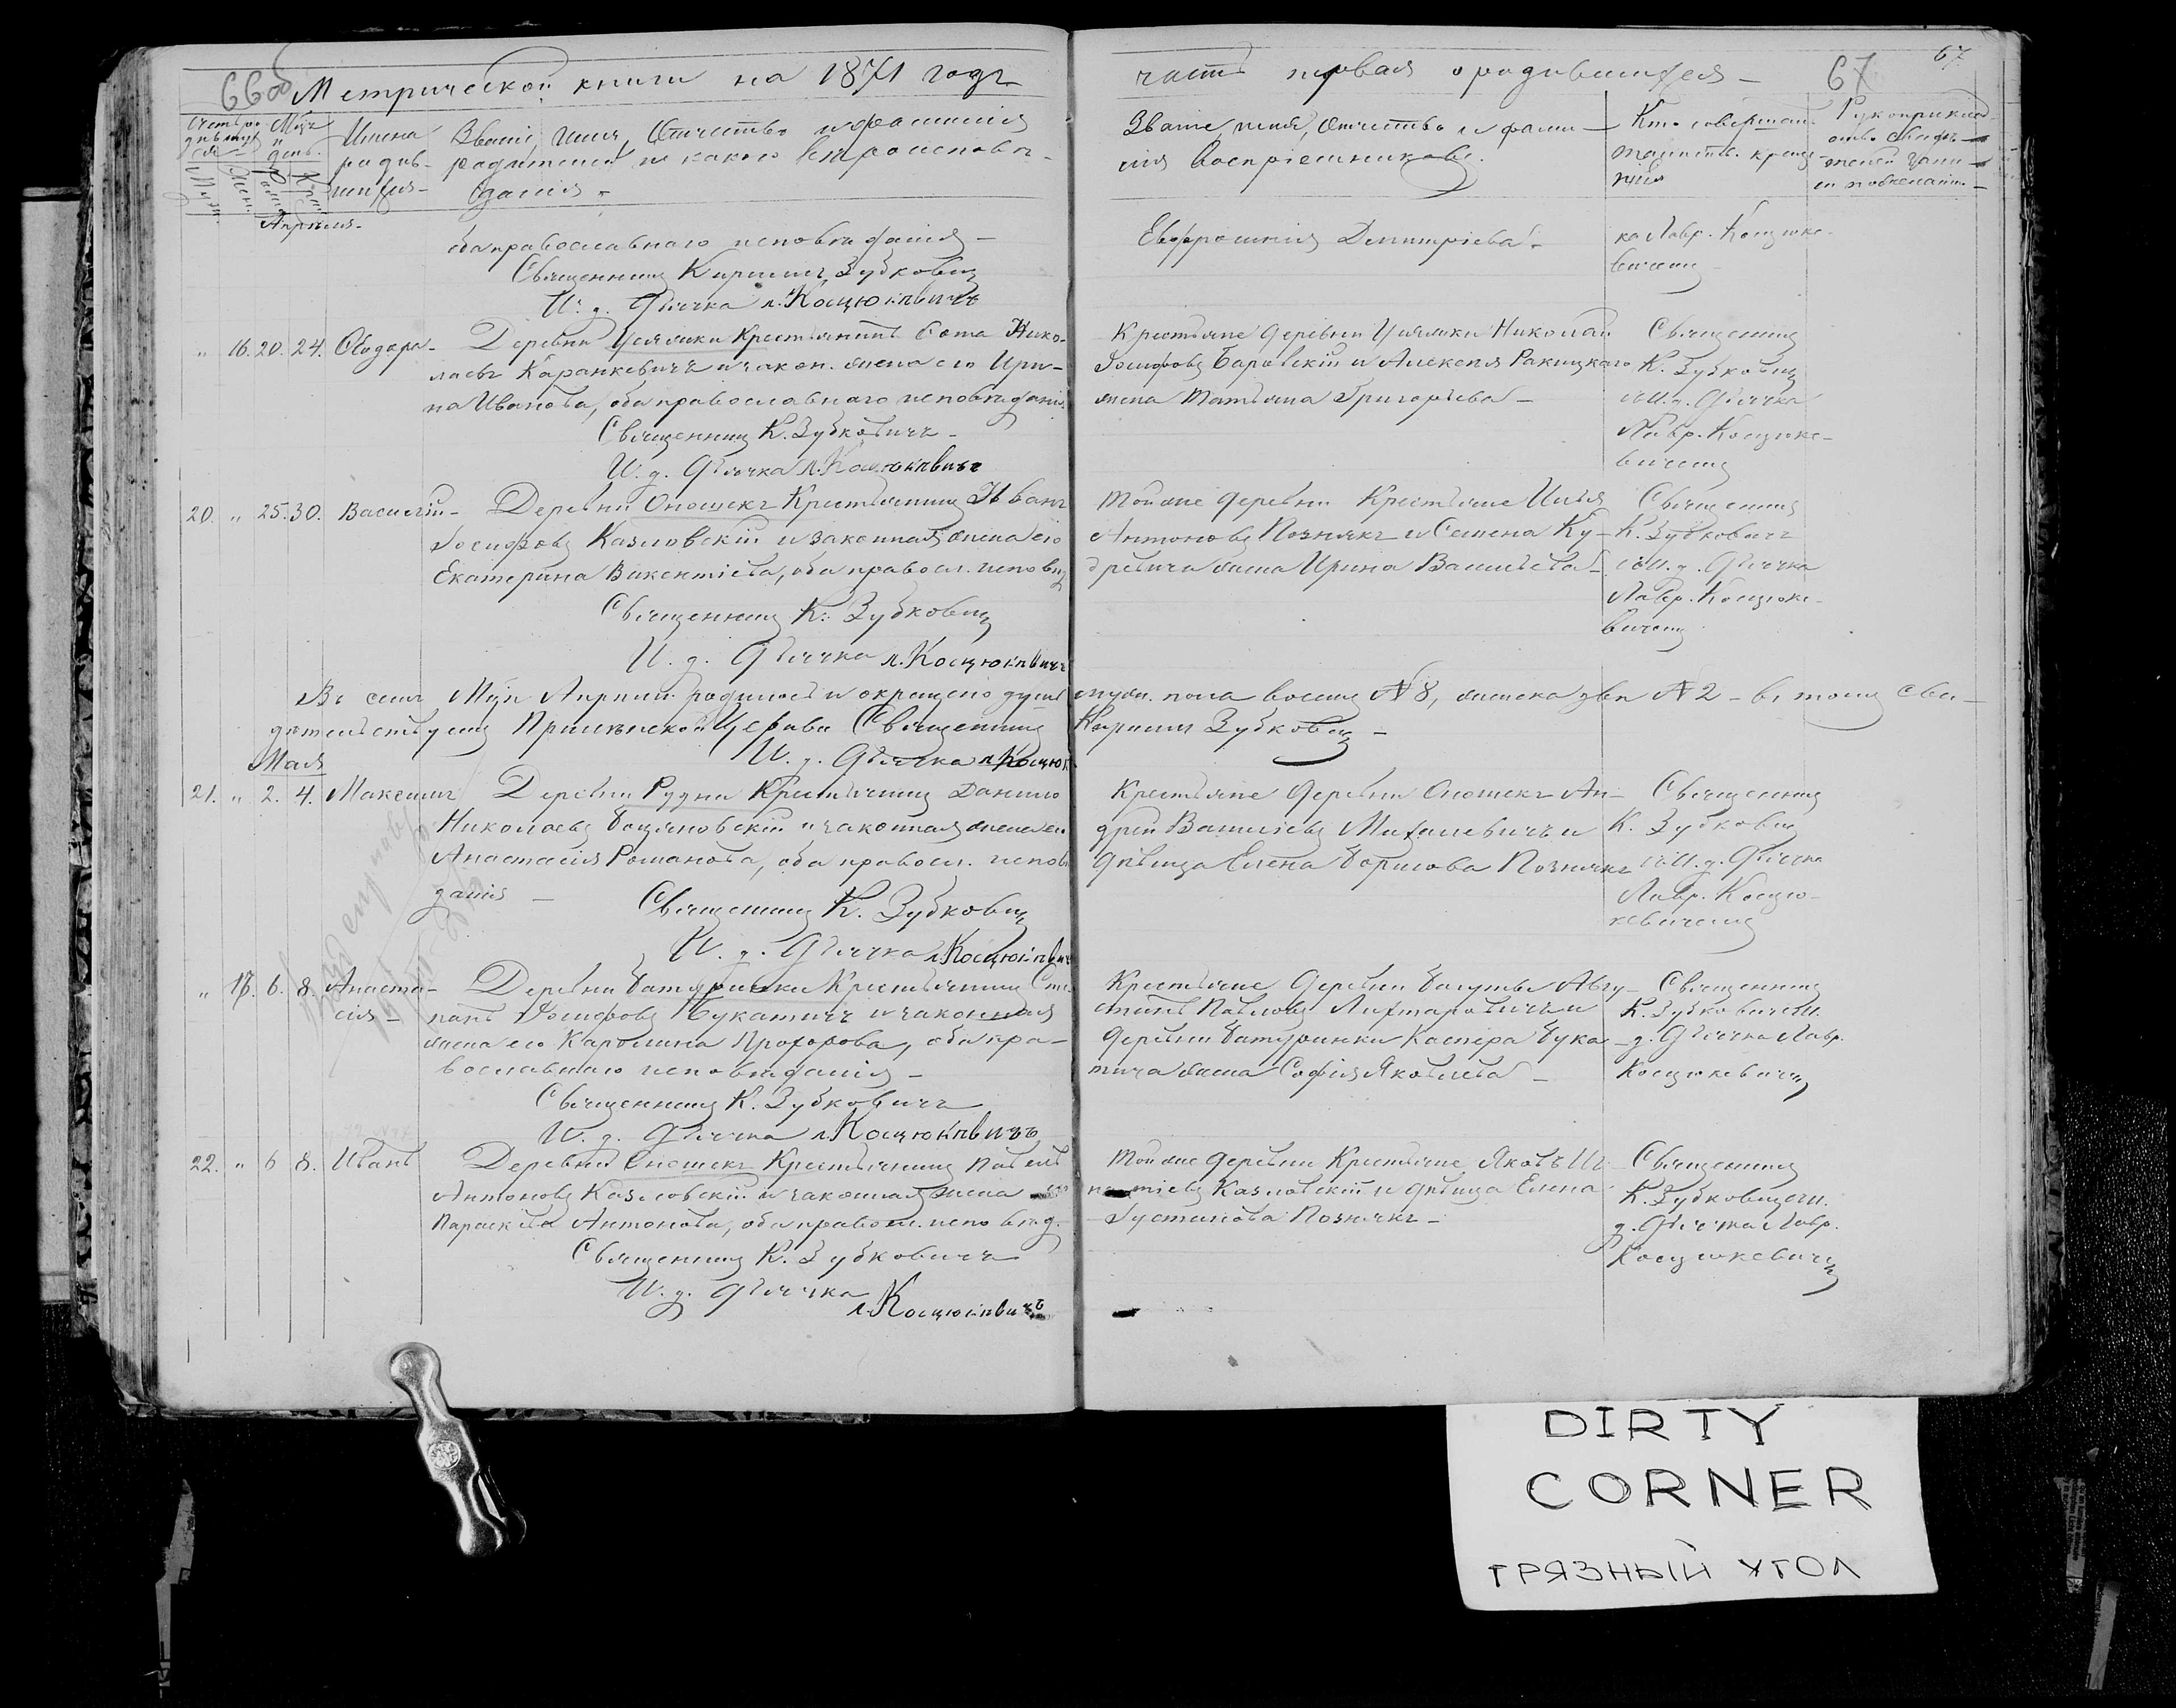 66об Метрической книги на 1871 годъ
часть первая о родившихся
67
67
Имена родив-шихся
Званіе, имя, Отчество и фамилія родителей и какого вѣроисповѣ-данія
Званіе, имя, Отчество и фами-лія воспріемниковъ.
Кто совершалъ таинство креще-нія
Апрѣля
оба православнаго исповѣданія
Священникъ Кириллъ Зубковичъ
И. д. Дьячка Л. Косцюкевичъ
Евфросинія Димитріева
ка Лавр. Косцюке-
вичемъ
„ 16. 20. 24. Ѳеодора
Деревни Крестьянинъ Нико-
лаевъ Каранкевичъ и закон. жена его Ири-
на Иванова, оба православнаго исповѣданія
Священникъ К. Зубковичъ
И. д. Дьячка Л. Косцюкевичъ
Крестьяне деревни Николай
Іосифовъ Боровскій и Алексѣя Ракицкаго
жена Татьяна Григорьева
Священникъ
К. Зубковичъ
съ И. д. Дьячка
Лавр. Косцюке-
вичемъ
20. „ 25. 30. Василій
Деревни Оношекъ Крестьянинъ Иванъ
Іосифовъ Казловскій и законная жена его
Екатерина Викентіева, оба правосл. исповѣд.
Священникъ К. Зубковичъ
И. д. Дьячка Л. Косцюкевичъ
Той же деревни Крестьяне Илья
Антоновъ Познякъ и Семена Ку-
древича жена Ирина Васильева
Священникъ
К. Зубковичъ
съ И. д. Дьячка
Лавр. Косцюке-
вичемъ
Въ семъ Мцѣ Апрѣлѣ родилось и окрещено душъ муж. пола восемь № 8, женска двѣ № 2 - въ томъ сви-
дѣтельствуемъ Церкви Священникъ Кириллъ Зубковичъ
И. д. Дьячка Л. Косцюк
Мая
21. „ 2. 4. Максимъ
Деревни Рудни Крестьянинъ Данило
Николаевъ и законная жена его
Анастасія Романова, оба правосл. исповѣ
данія
Священникъ К. Зубковичъ
И. д. Дьячка Л. Косцюкевичъ
Крестьяне Деревни Оношекъ Ан-
дрей Васильевъ Михалевичъ и
дѣвица Елена Борисова Познякъ
Священникъ
К. Зубковичъ
съ И. д. Дьячка
Лавр. Косцю-
кевичемъ
„ 17. 6. 8. Анаста-
сія
Деревни Батуринки Крестьянинъ Сте-
панъ Іосифовъ Букатичъ и законная
жена его Каролина Прохорова, оба пра-
вославнаго исповѣданія
Священникъ К. Зубковичъ
И. д. Дьячка Л. Косцюкевичъ
Крестьяне Деревни Авгу-
стинъ Павловъ Лихтаровичъ и
деревни Батуринки Каспера Бука-
тича жена Софія Яковлева
Священникъ
К. Зубковичъ съ И.
д. Дьячка Лавр.
Косцюкевичемъ
22. „ 6 8. Иванъ
Деревни Оношекъ Крестьянинъ Павелъ
Антоновъ Казловскій и законная жена его
Параскева Антонова, оба правосл. исповѣд.
Священникъ К. Зубковичъ
И. д. Дьячка
Л. Косцюкевичъ
Той же Деревни Крестьяне Яковъ Иг-
натіевъ Казловскій и дѣвица Елена
Іустинова Познякъ
Священникъ
К. Зубковичъ съ И.
д. Дьячка Лавр.
Косцюкевичемъ
DIRTY
CORNER
ГРЯЗНЫЙ УГОЛ